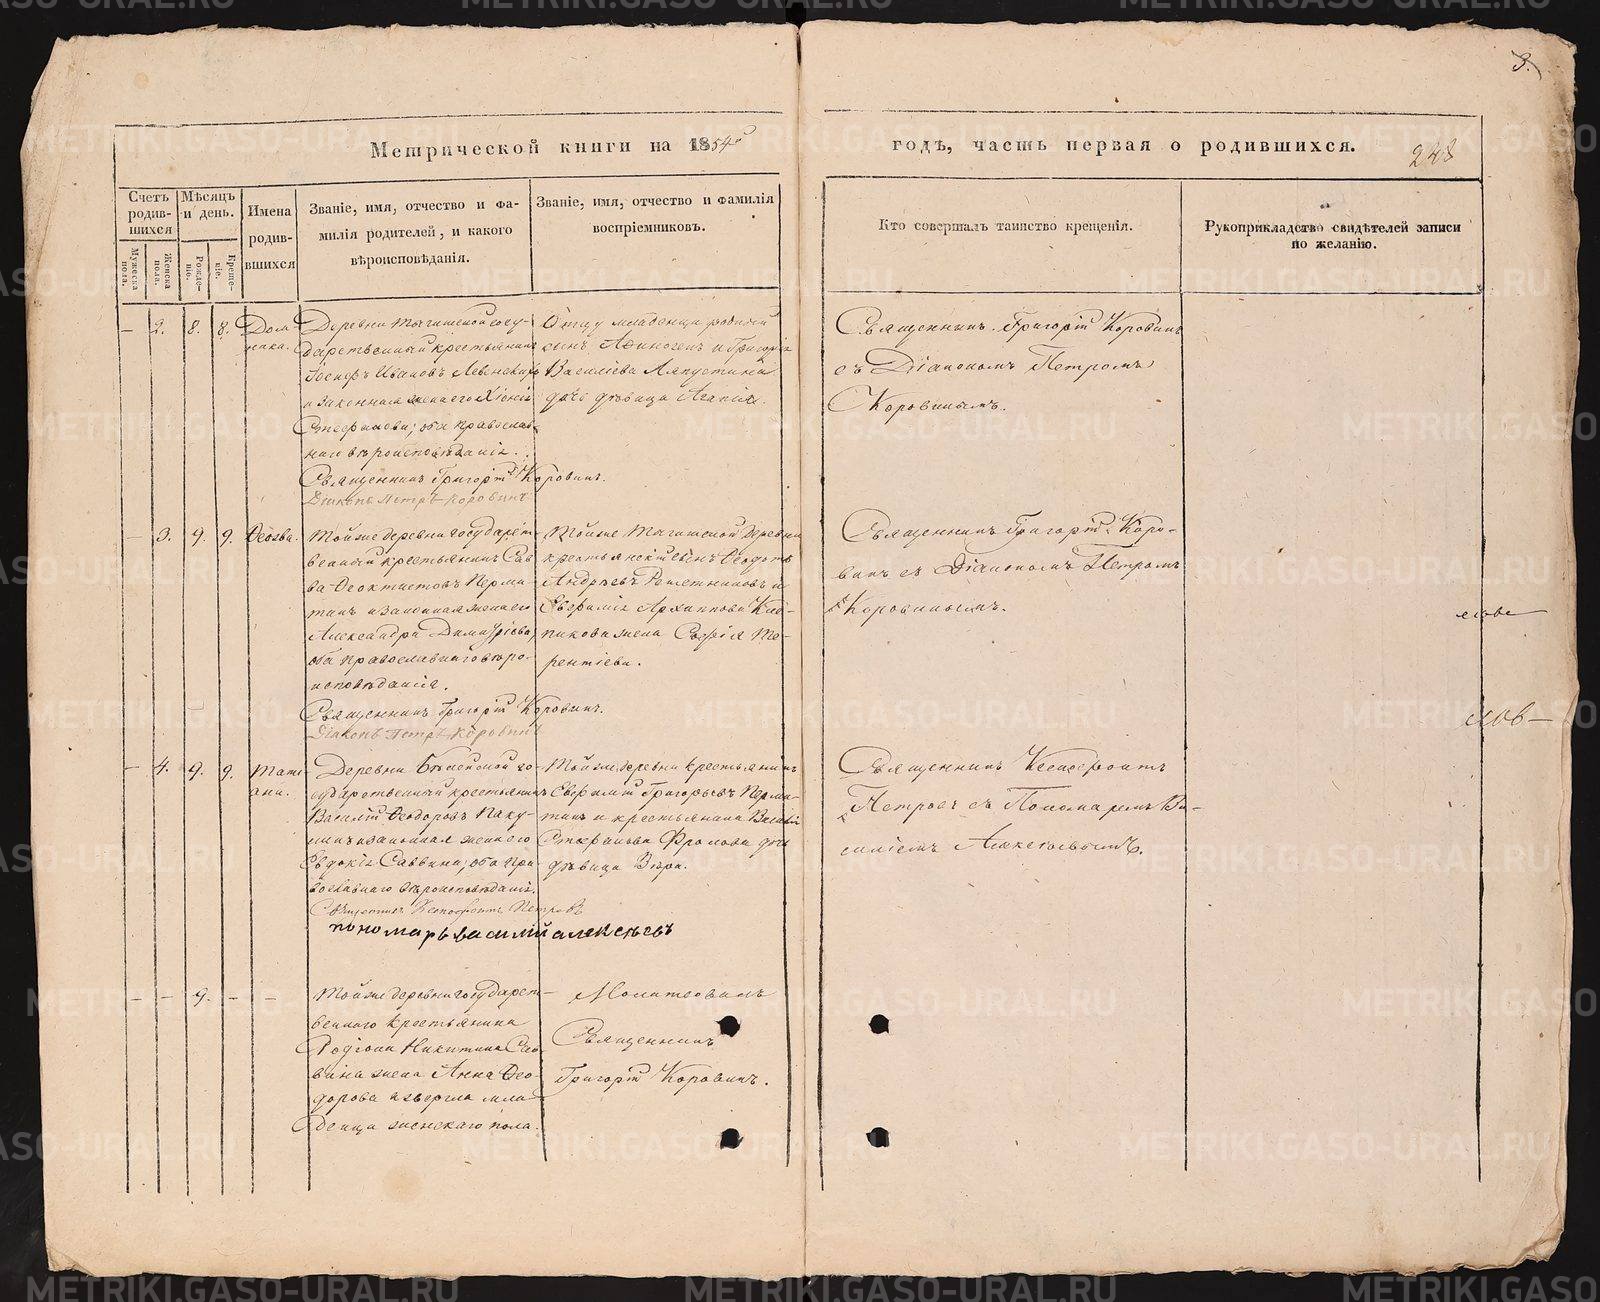 3.
Метрической книги на 1854 годъ, часть первая о родившихся.
248
Счетъ родив-
шихся
Мѣсяцъ
и день.
Имена
родив-
шихся
Званіе, имя, отчество и фа-
милія родителей, и какого
вѣроисповѣданія.
Званіе, имя, отчество и фамилія
воспріемниковъ.
Кто совершалъ таинство крещенія.
Рукоприкладство свидѣтелей записи
по желанію.
Мужеска
пола.
Женска
пола.
Рожде-
ніе.
Креще-
ніе.
— 2. 8. 8. Дом-
ника.
Деревни госу-
дарственный крестьянинъ
Іосифъ Ивановъ
и законная жена его Хіонія
Стефанова; оба православ-
наго вѣроисповѣданія.
Священникъ Григорій Коровинъ.
Діаконъ Петръ Коровинъ
Отцу младенца родной
сынъ Афиногенъ и Григорія
Васильева Ляпустина
дочь дѣвица Агапія.
Священникъ Григорій Коровинъ
съ Діакономъ Петромъ
Коровинымъ.
— 3. 9. 9. Ѳеозва.
Тойже деревни государст-
венный крестьянинъ Сав-
ва Ѳеоктистовъ Перми-
тинъ и законная жена его
Александра Димитріева,
оба православнаго вѣро-
исповѣданія.
Священникъ Григорій Коровинъ.
Діаконъ Петръ Коровинъ
Тойже деревни
крестьянскій сынъ Ѳеодотъ
Андреевъ Решетниковъ и
Евфимія Архиппова
жена Софія Те-
рентіева.
Священникъ Григорій Коро-
винъ съ Діакономъ Петромъ
Коровинымъ.
— 4. 9. 9. Тать-
яна.
Деревни го-
сударственный крестьянинъ
Василій Ѳеодоровъ
и законная жена его
Евдокія Саввина; оба пра-
вославнаго вѣроисповѣданія.
Священникъ Ксенофонтъ Петровъ
пономарь василий алексѣевъ
Тойже деревни крестьянинъ
Евфимій Григорьевъ Перми-
тинъ и крестьянина Василія
Фролова дочь
дѣвица Вѣра.
Священникъ Ксенофонтъ
Петровъ съ Пономаремъ Ва-
силіемъ Алексѣевымъ.
— — 9. — —
Тойже деревни государст-
веннаго крестьянина
Родіона Никитина
жена Анна Ѳео-
дорова извергла мла-
денца женскаго пола.
Молитвовалъ
Священникъ
Григорій Коровинъ.